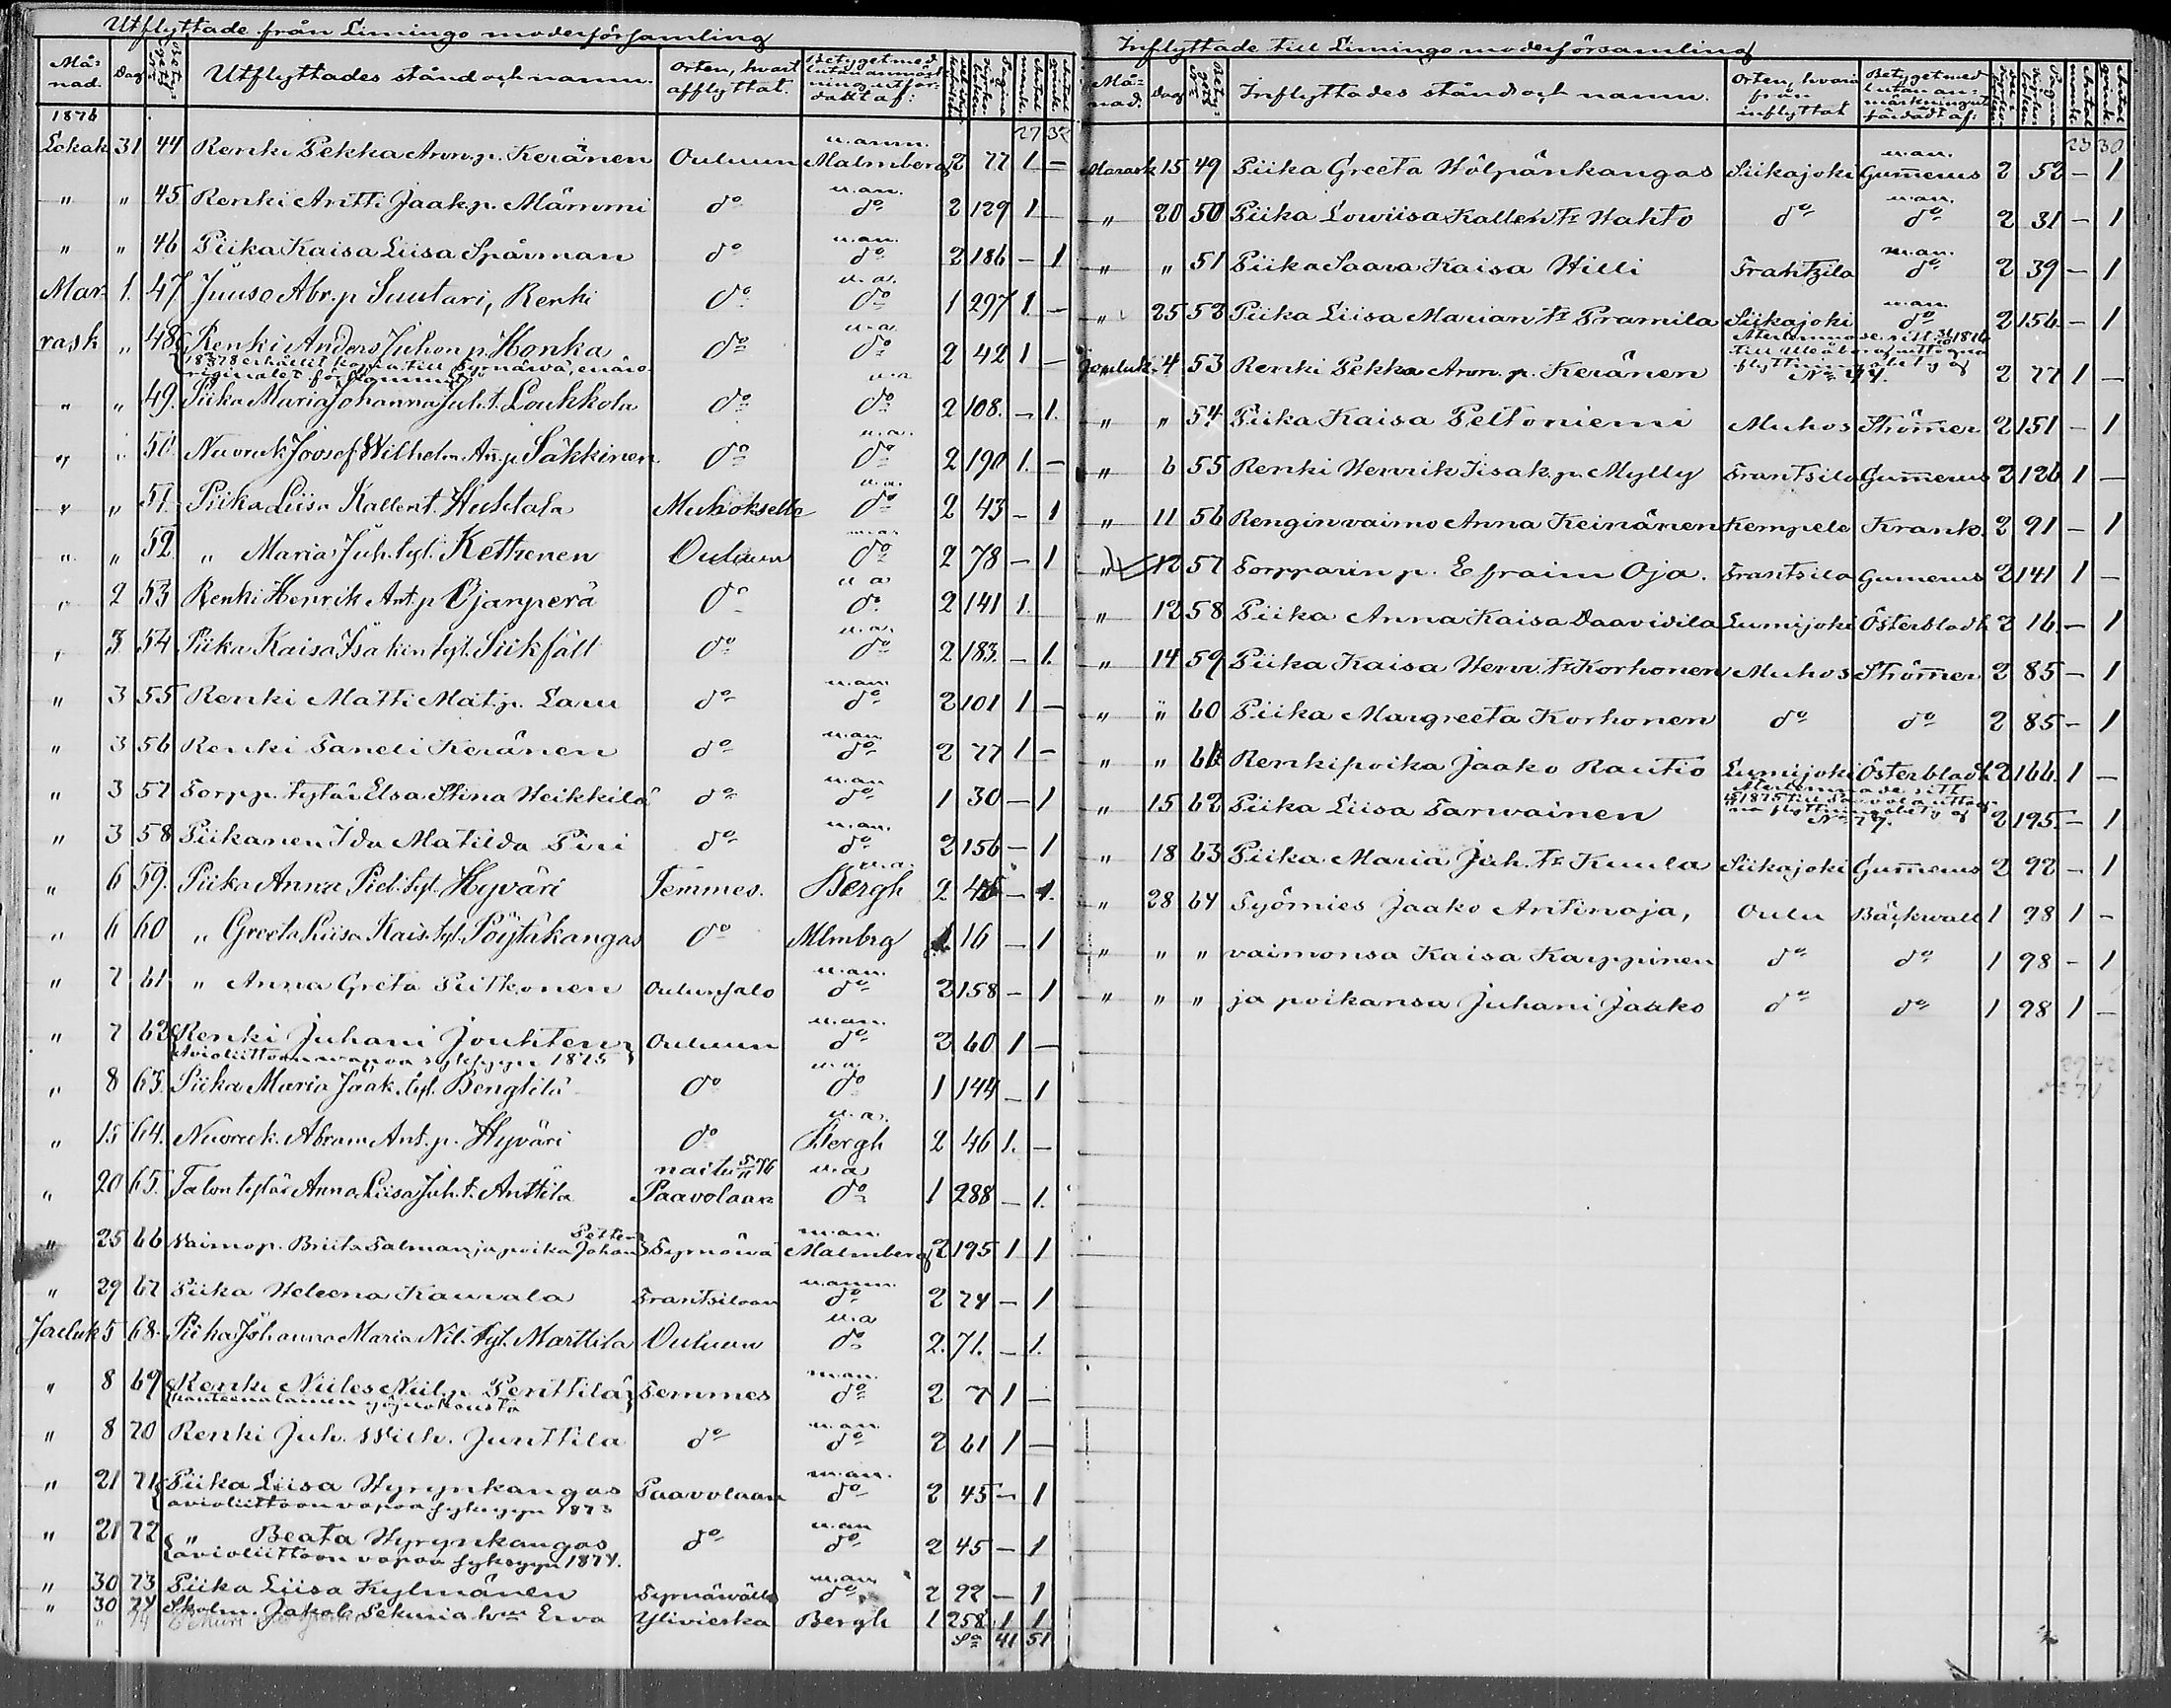 Utflyttade från Limingo moderförsamling
Må-nad. Dag Utflyttades stånd och namn. Orten, hvart afflyttat. Betyget med
1876
27 32
Lokak 31 44 Renki Pekka Aron.p. Keränen Ouluun u. anm. Malmberg 2 77 1 –
" " 45 Renki Antti Jaak.p. Määnmi do u. an. do 2 129 1
" " 46 Piika Kaisa Liisa Spärman do u. an. do 2 186 – 1
Mar- 1. 47 Juuso Abr.p Suutari, Renki do u. a. do 1 297 1. –
rask " 48 Renki Anders Juhon p. Honka do u. a. do 2 42 1 –
" " 49. Piika Maria Johanna Juh.t. Loukkola do u. a do 2 108. – 1.
" " 50. Nuoruk Joosef Wilhelm An.p. Säkkinen do u. a. do 2 190 1. –
" " 51. Piika Liisa Kallent. Huhtala Muhokselle u. a. do 2 43 – 1
" " 52. " Maria Juh. tyt. Kettunen Ouluun do 2 78 – 1
" 2 53 Renki Henrik Ant.p Ojanperä do u a do 2 141 1.
" 3 54 Piika Kaisa Isakin tyt. Siikfält do u. a. do 2 183. – 1.
" 3 55 Renki Matti Mat.p. Lauu do u. an. do 2 101 1 –
" 3 56 Renki Taneli Keränen do u. an. do 2 77 1 –
" 3 57 Torpp. tytär Elsa Stina Heikkilä do u. an do 1 30 – 1
" 3 58 Piikanen Ida Matilda Piri do u. an. do 2 156 – 1
" 6 59. Piika Anna Piet. tyt. Hyväri Temmes. u. a. Bergh 2 46 – 1.
" 6 60 " Greeta Liisa Kais. tyt. Pöytäkangas do Mlmbrg 1 16 – 1
" 7 61 " Anna Greta Pitkonen Oulunsalo u. an. do 2 158 – 1
" 7 62 Renki Juhani Jouhten Ouluun u. an. do 2 60 1 –
avioliittoon vapaa syksyyn 1875
" 8 63. Piika Maria Jaak. tyt. Bengtilä do u. a. do 1 144 – 1
" 15 64. Nuoruk. Abram Ant. p. Hyväri do u. a. Bergh 2 46 1. –
" 20 65. Talon tytär Anna Liisa Juh.t. Anttila naitu 5/11 76 Paavolaan u. a do 1 288 – 1.
" 25 66 Vaimop. Briita Salman ja poika Petter Johan Tyrnäwä u. an. Malmberg 2 195 1 1
" 29 67 Piika Heleena Kauvala Frantsilaan u. anm. do 2 74 – 1
Jouluk 5 68. Piika Johanna Maria Nil. tyt. Marttila Ouluun u. a do 2. 71. – 1.
" 8 69 Renki Niiles Niil.p Penttilä Temmes u. an. do 2 7 1 –
" 8 70 Renki Juh. Wilh. Junttila do u. an. do 2 61 1 –
" 21 71 Piika Liisa Hyrynkangas Paavolaan u. an. do 2 45 – 1
avioliittoon vapaa syksyyn 1873
" 21 72 " Beata Hyrynkangas do u. an do 2 45 – 1
avioliittoon vapaa syksyyn 1874.
" 30 73 Piika Liisa Kylmänen Tyrnäwälle u. an. do 2 92 – 1
" 30 74 Skolm. Jakob Sekuria h:m Ewa Ylivieska Bergh 1 258 1 1
Sa 41 51
Inflyttade till Limingo moderförsamling
Må-nad. Dag Inflyttades stånd och namn. Orten, hvari från inflyttat Betyget med utan an-
23 30
Marrask 15 49 Piika Greeta Hölpänkangas Siikajoki u. an. Gummerus 2 52 – 1
" 20 50 Piika Lowiisa Kallen tr Hahto do u. an. do 2 31 – 1
" " 51 Piika Saara Kaisa Hilli Frantzila u. an. do 2 39 – 1
" 25 52 Piika Liisa Marian tr Pramila Siikajoki u. an. do 2 156 – 1
Jouluk. 4 53 Renki Pekka Aron. p. Keränen Återlemnade sitt 31/10 1876 till Uleåborg uttagna flyttningsbetyg No 44. 2 77 1 –
" " 54 Piika Kaisa Peltoniemi Muhos Strömmer 2 151 – 1
" 6 55 Renki Henrik Iisak.p. Mylly Frantsila Gummerus 2 126 1 –
" 11 56 Rengin vaimo Anna Keinänen Kempele Krank. 2 91 – 1
" 12 57 Torpparin p. Efraim Oja. Frantsila Gumerus 2 141 1 –
" 12 58 Piika Anna Kaisa Daavidila Lumijoki Österbladh 2 16 – 1
" 14 59 Piika Kaisa Henr. tr Korhonen Muhos Strömmer 2 85 – 1
" " 60 Piika Margreeta Korhonen do do 2 85 – 1
" " 61 Renkipoika Jaako Rautio Lumijoki Österbladh 2 166 1 –
" 15 62 Piika Liisa Tarvainen Återlemnade sitt 1875 till Paavola uttagna flyttningsbetyg No 77. 2 195 – 1
" 18 63 Piika Maria Juh. tr Kuula Siikajoki Gummerus 2 92 – 1
" 28 64 Työmies Jaako Antinoja, Oulu Bäckwall 1 98 1 –
" " " vaimonsa Kaisa Karppinen do do 1 98 – 1
" " " ja poikansa Juhani Jaako do do 1 98 1 –